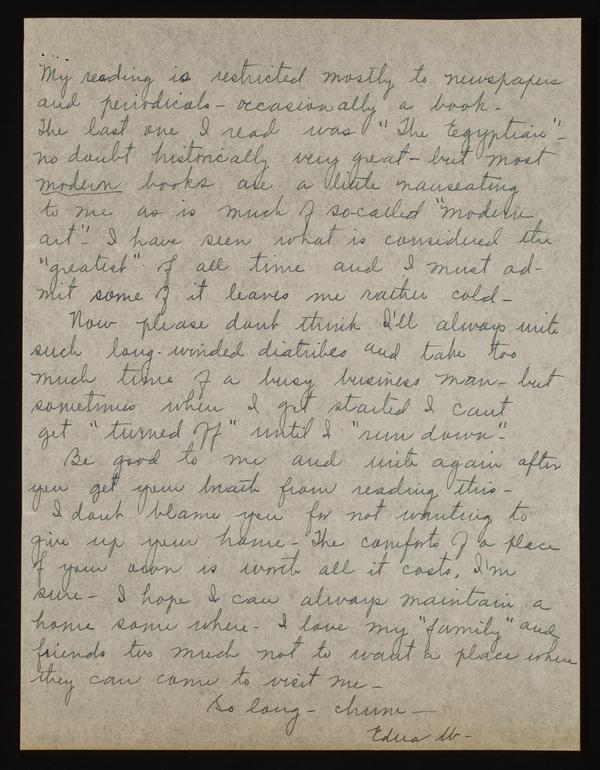 My reading is restricted mostly to newspapers
and periodicals - occasionally a book -
The last one I read was "The Egyptian" -
no doubt historically very great - but most
modern books are a little nauseating
to me as is much of so-called "modern
art" - I have seen what is considered the
"greatest" of all time and I must ad-
mit some of it leaves me rather cold -
Now please dont think I'll always write
such long-winded diatribes and take too
much time of a busy business man - but
sometimes when I get started I cant
get "turned off" until I "run down" -
Be good to me and write again after
you get your breath from reading this -
I dont blame you for not wanting to
give up your home - The comforts of a place
of your own is worth all it costs, I'm
sure - I hope I can always maintain a
home some where - I love my "family" and
friends too much not to want a place where
they can come to visit me -
So long - chum -
Edna W -